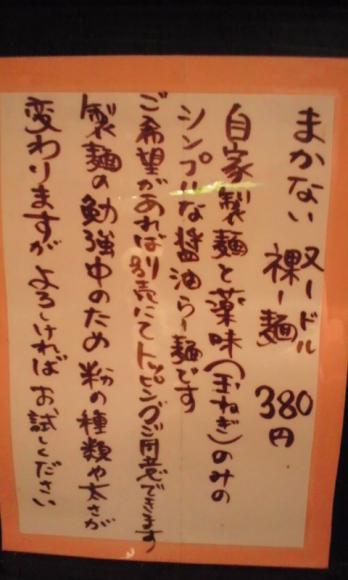 まかない ヌードル
裸ー麺 380円
自家製麺と薬味(玉ねぎ)のみの
シンプルな醤油らー麺です
ご希望があれば別売にてトッピングご用意できます
製麺の勉強中のため 粉の種類や太さが
変わりますが よろしければ お試しください